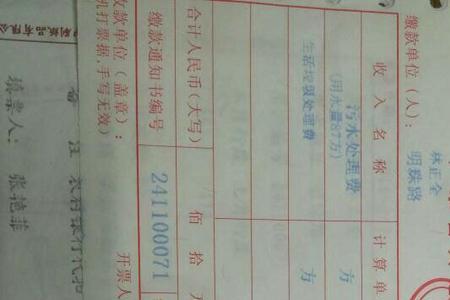 缴款单位（人）：
林正全
明珠路
收入名称
计算单
污水处理费
（用水量87方）
方
生活垃圾处理费
方
合计人民币（大写）
佰拾万
缴款通知书编号
241100071
收款单位（盖章）：
开票人
机打票据，手写无效）
填票人：张艳菲